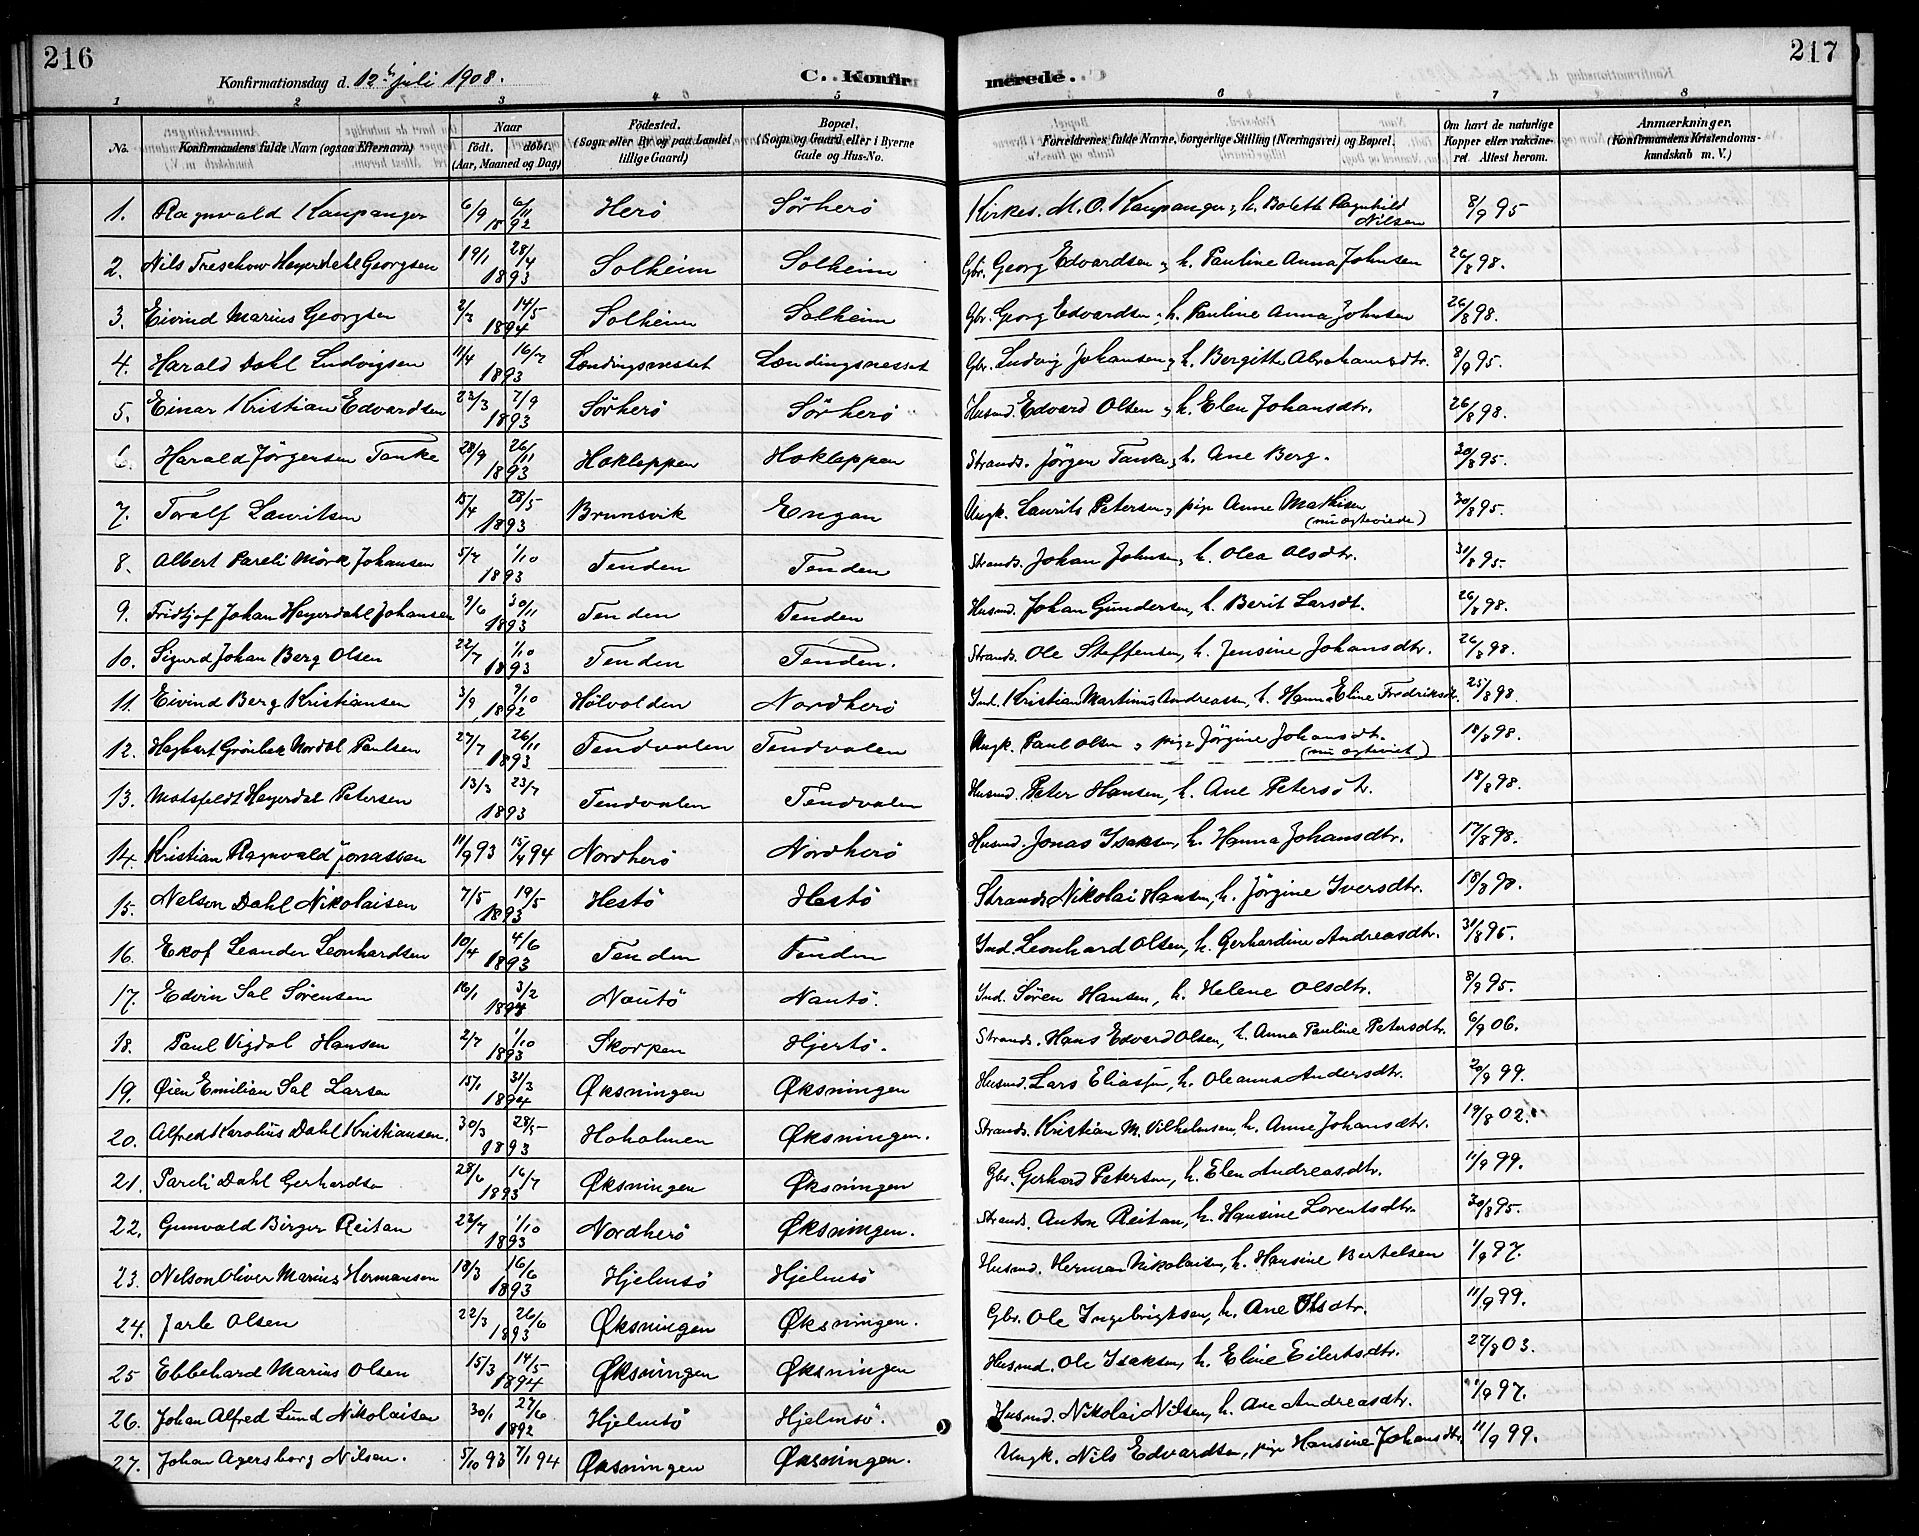 216
Konfirmationsdag d. 12te juli 1908.
C. Konfirmerede.
217
1 2 3 4 5 6 7 8
No. Konfirmandens fulde Navn (ogsaa Efternavn) Naar født. døbt. (Aar, Maaned og Dag) Fødested. (Sogn eller By og paa Landet tillige Gaard) Bopæl. (Sogn og Gaard eller i Byerne Gade og Hus-No. Forældrenes fulde Navne, borgerlige Stilling (Næringsvei) og Bopæl. Om havt de naturlige Kopper eller vakcineret. Attest herom. Anmærkninger. (Konfirmandens Kristendomskundskab m. V.)
1. Ragnvald Kaupanger 6/9 6/11 1892 Herö Sörherö Kirkes. M. O. Kaupanger, h. Bolette Ragnhild Nilsen 8/9 95
2. Nils Treschow Heyerdahl Georgsen 19/1 28/4 1893 Solheim Solheim Gbr. Georg Edvardsen, h. Pauline Anna Johnsen 26/8 98.
3. Eivind Marius Georgsen 2/3 14/5 1894 Solheim Solheim Gbr. Georg Edvardsen, h. Pauline Anna Johnsen 26/8 98.
4. Harald Dahl Ludvigsen 11/4 16/7 1893 Lændingsnesset Lændingsnesset Gbr. Ludvig Johansen, h. Bergitte Abrahamsdtr. 8/9 95.
5. Einar Kristian Edvardsen 23/3 7/9 1893 Sörherö Sörherö Husmd. Edvard Olsen, h. Elen Johansdtr. 26/8 98.
6. Harald Jörgensen Tanke 28/9 26/11 1893 Hoklappen Hoklappen Strands. Jörgen Tanke, h. Ane Berg. 30/8 95.
7. Toralf Lauritsen 15/4 28/5 1893 Brunsvik Engan Ungk. Laurits Petersen, pige Anne Mathisen (nu ægteviede) 30/8 95.
8. Albert Pareli Mörk Johansen 5/7 1/10 1893 Tenden Tenden Strands. Johan Johnsen, h. Olea Olsdtr. 31/8 95.
9. Fridtjof Johan Heyerdahl Johansen 9/6 30/11 1893 Tenden Tenden Husmd. Johan Gundersen, h. Berit Larsdt. 26/8 98.
10. Sigurd Johan Berg Olsen 22/7 1/10 1893 Tenden Tenden. Strands. Ole Steffensen, h. Jensine Johansdtr. 26/8 98.
11. Eivind Berg Kristiansen 3/9 9/10 1892 Hölvolden Nordherö Ind. Kristian Martinus Andreassen, h. Hanna Eline Fredriksd. 25/8 98.
12. Hagbart Grönbek Nordal Paulsen 27/7 26/11 1893 Tendvalen Tendvalen Ungk. Paul Olsen, pige Jörgine Johansdt. (nu ægteviet) 18/8 98.
13. Motzfeldt Heyerdal Petersen 13/3 23/7 1893 Tendvalen Tendvalen Husmd. Peter Hansen, h. Ane Petersdt. 18/8 98.
14. Kristian Ragnvald Jonassen 11/9 93 15/4 94 Nordherö Nordherö Husmd. Jonas Isaksen, h. Hanna Johansdtr. 17/8 98.
15. Nelson Dahl Nikolaisen 7/5 19/5 1893 Hestö Hestö Strands. Nikolai Hansen, h. Jörgine Iversdtr. 18/8 98.
16. Ekof Leander Leonhardsen 10/4 4/6 1893 Tenden Tenden Ind. Leonhard Olsen, h. Gerhardine Andreasdtr. 31/8 95.
17. Edvin Sal Sørensen 16/1 3/2 1894 Nautö Nautö. Ind. Sören Hansen, h. Helene Olsdtr. 8/9 95.
18. Paul Vigdal Hansen 2/7 1/10 1893 Skorpen Hjertö. Strands. Hans Edvard Olsen, h. Anna Pauline Petersdtr. 6/9 06.
19. Øien Emilian Sal Larsen 15/1 31/3 1894 Øksningen Øksningen Husmd. Lars Eliassen, h. Oleanna Andersdtr. 20/9 99.
20. Alfred Karolius Dahl Kristiansen. 30/3 28/5 1893 Hoholmen Øksningen. Strands. Kristian M. Vilhelmsen, h. Anne Johansdtr. 19/8 02.
21. Pareli Dahl Gerhardsen 28/6 16/7 1893 Øksningen Øksningen Gbr. Gerhard Petersen, h. Elen Andreasdtr. 11/9 99.
22. Gunvald Birger Reitan 22/7 1/10 1893 Nordherö Øksningen. Strands. Anton Reitan, h. Hansine Lorentsdtr. 30/8 95.
23. Nelson Oliver Marius Hermansen 18/3 16/6 1893 Hjelmsö Hjelmsö Husmd. Herman Nikolaisen, h. Hansine Bertelsen 1/9 97.
24. Jarle Olsen 22/3 26/6 1893 Øksningen Øksningen. Gbr. Ole Ingebrigtsen, h. Ane Olsdtr. 11/9 99.
25 Ebbehard Marius Olsen 15/3 14/5 1894 Øksningen Øksningen Husmd. Ole Isaksen, h. Eline Eilertsdtr. 27/8 03.
26. Johan Alfred Lund Nikolaisen 30/1 27/6 1892 Hjelmsö Hjelmsö. Husmd. Nikolai Nilsen, h. Ane Andreasdtr. 1/9 97.
27. Johan Agersborg Nilsen. 5/10 93 7/1 94 Øksningen Øksningen. Ungk. Nils Edvardsen, pige Hansine Johansdtr. 11/9 99.